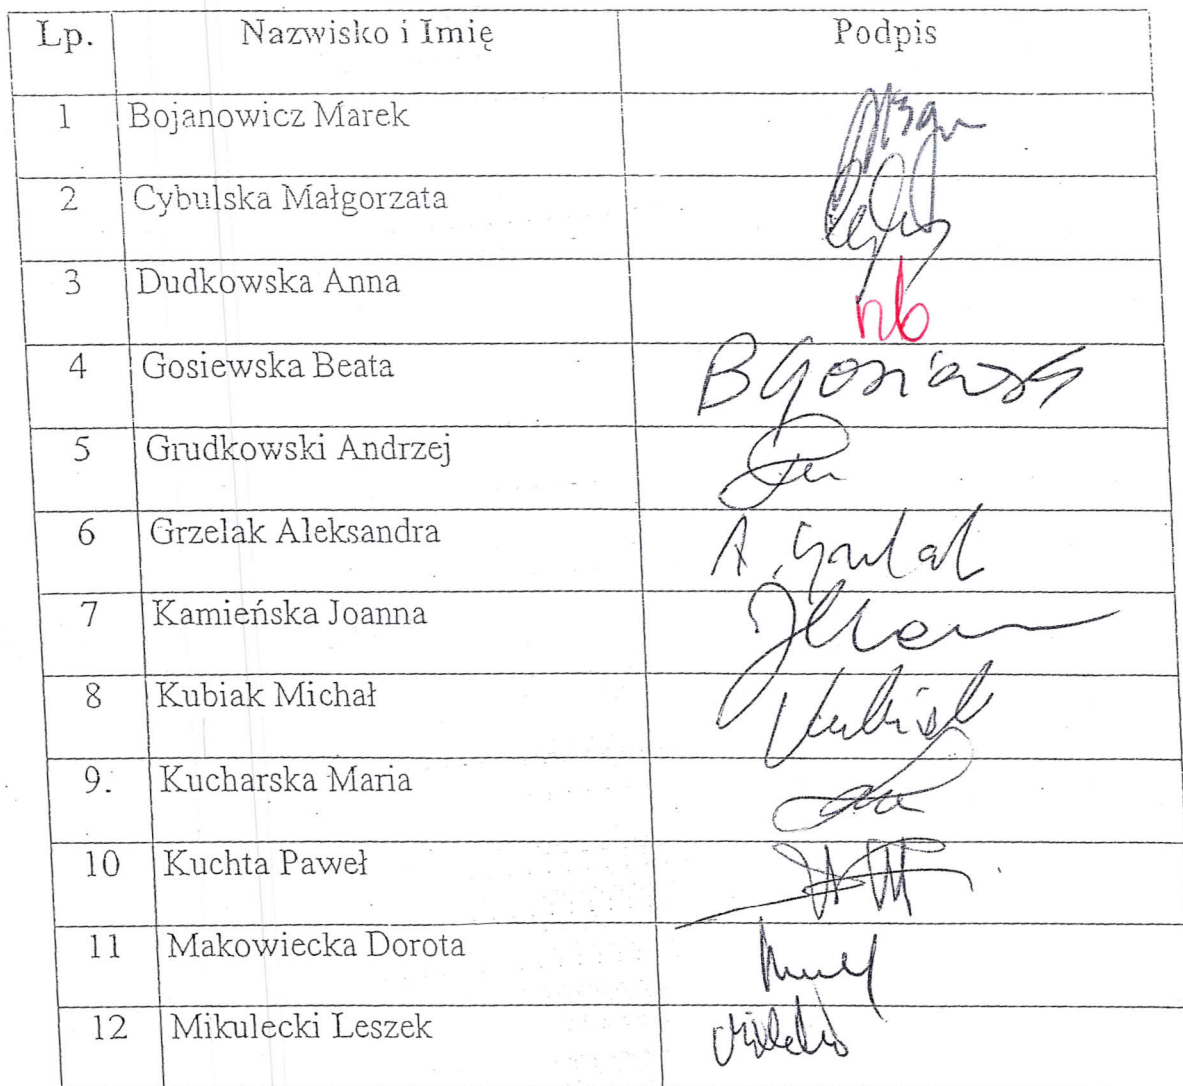 Lp. Nazwisko i Imię Podpis
1 Bojanowicz Marek
2 Cybulska Małgorzata
3 Dudkowska Anna nb
4 Gosiewska Beata B Gosiewsk
5 Grudkowski Andrzej
6 Grzelak Aleksandra A. Grzelak
7 Kamieńska Joanna
8 Kubiak Michał Kubiak
9. Kucharska Maria
10 Kuchta Paweł
11 Makowiecka Dorota
12 Mikulecki Leszek